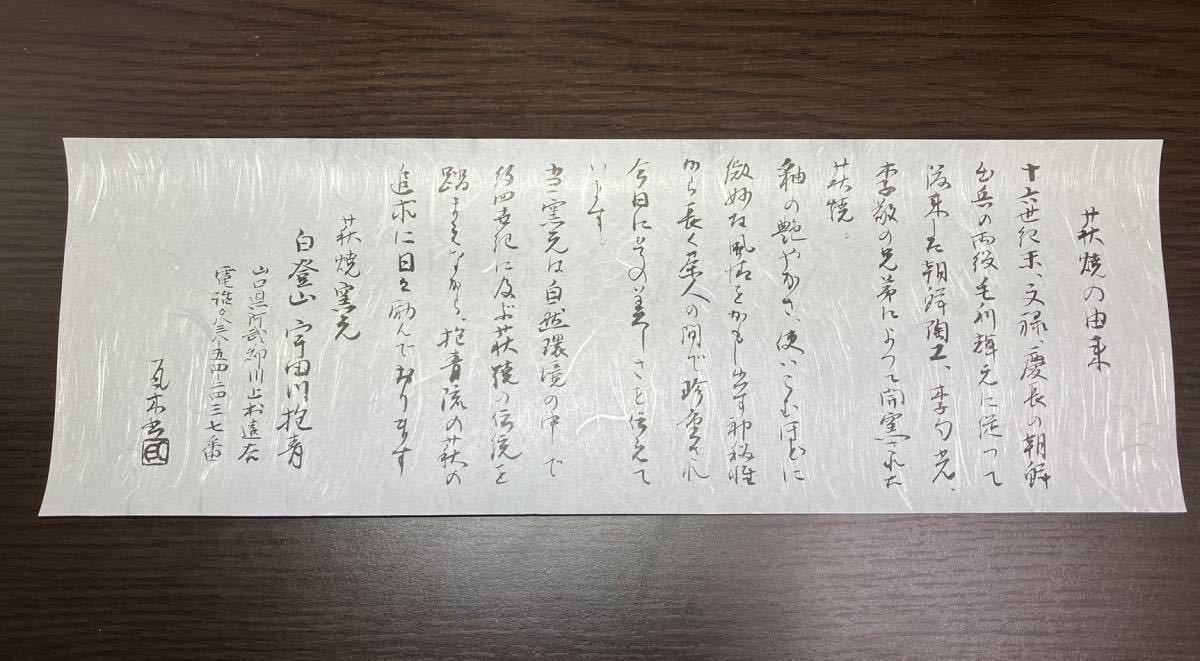 萩焼の由来
十六世紀末、文禄、慶長の朝鮮
出兵の両役毛利輝元に従って
渡来した朝鮮陶工、李勺光、
李敬の兄弟によって開窯された
萩焼。
釉の艶やかさ、使いこむほどに
微妙な風情をかもし出す神秘性
から長く茶人の間で珍重され
今日にその美しさを伝えて
います。
当窯元は自然環境の中で
約四世紀に及ぶ萩焼の伝統を
踏まえながら、抱青流の萩の
追求に日々励んでおります
萩焼窯元
白登山 宇田川抱青
山口県阿武郡川上村遠谷
電話〇八三八五四-二四三七番